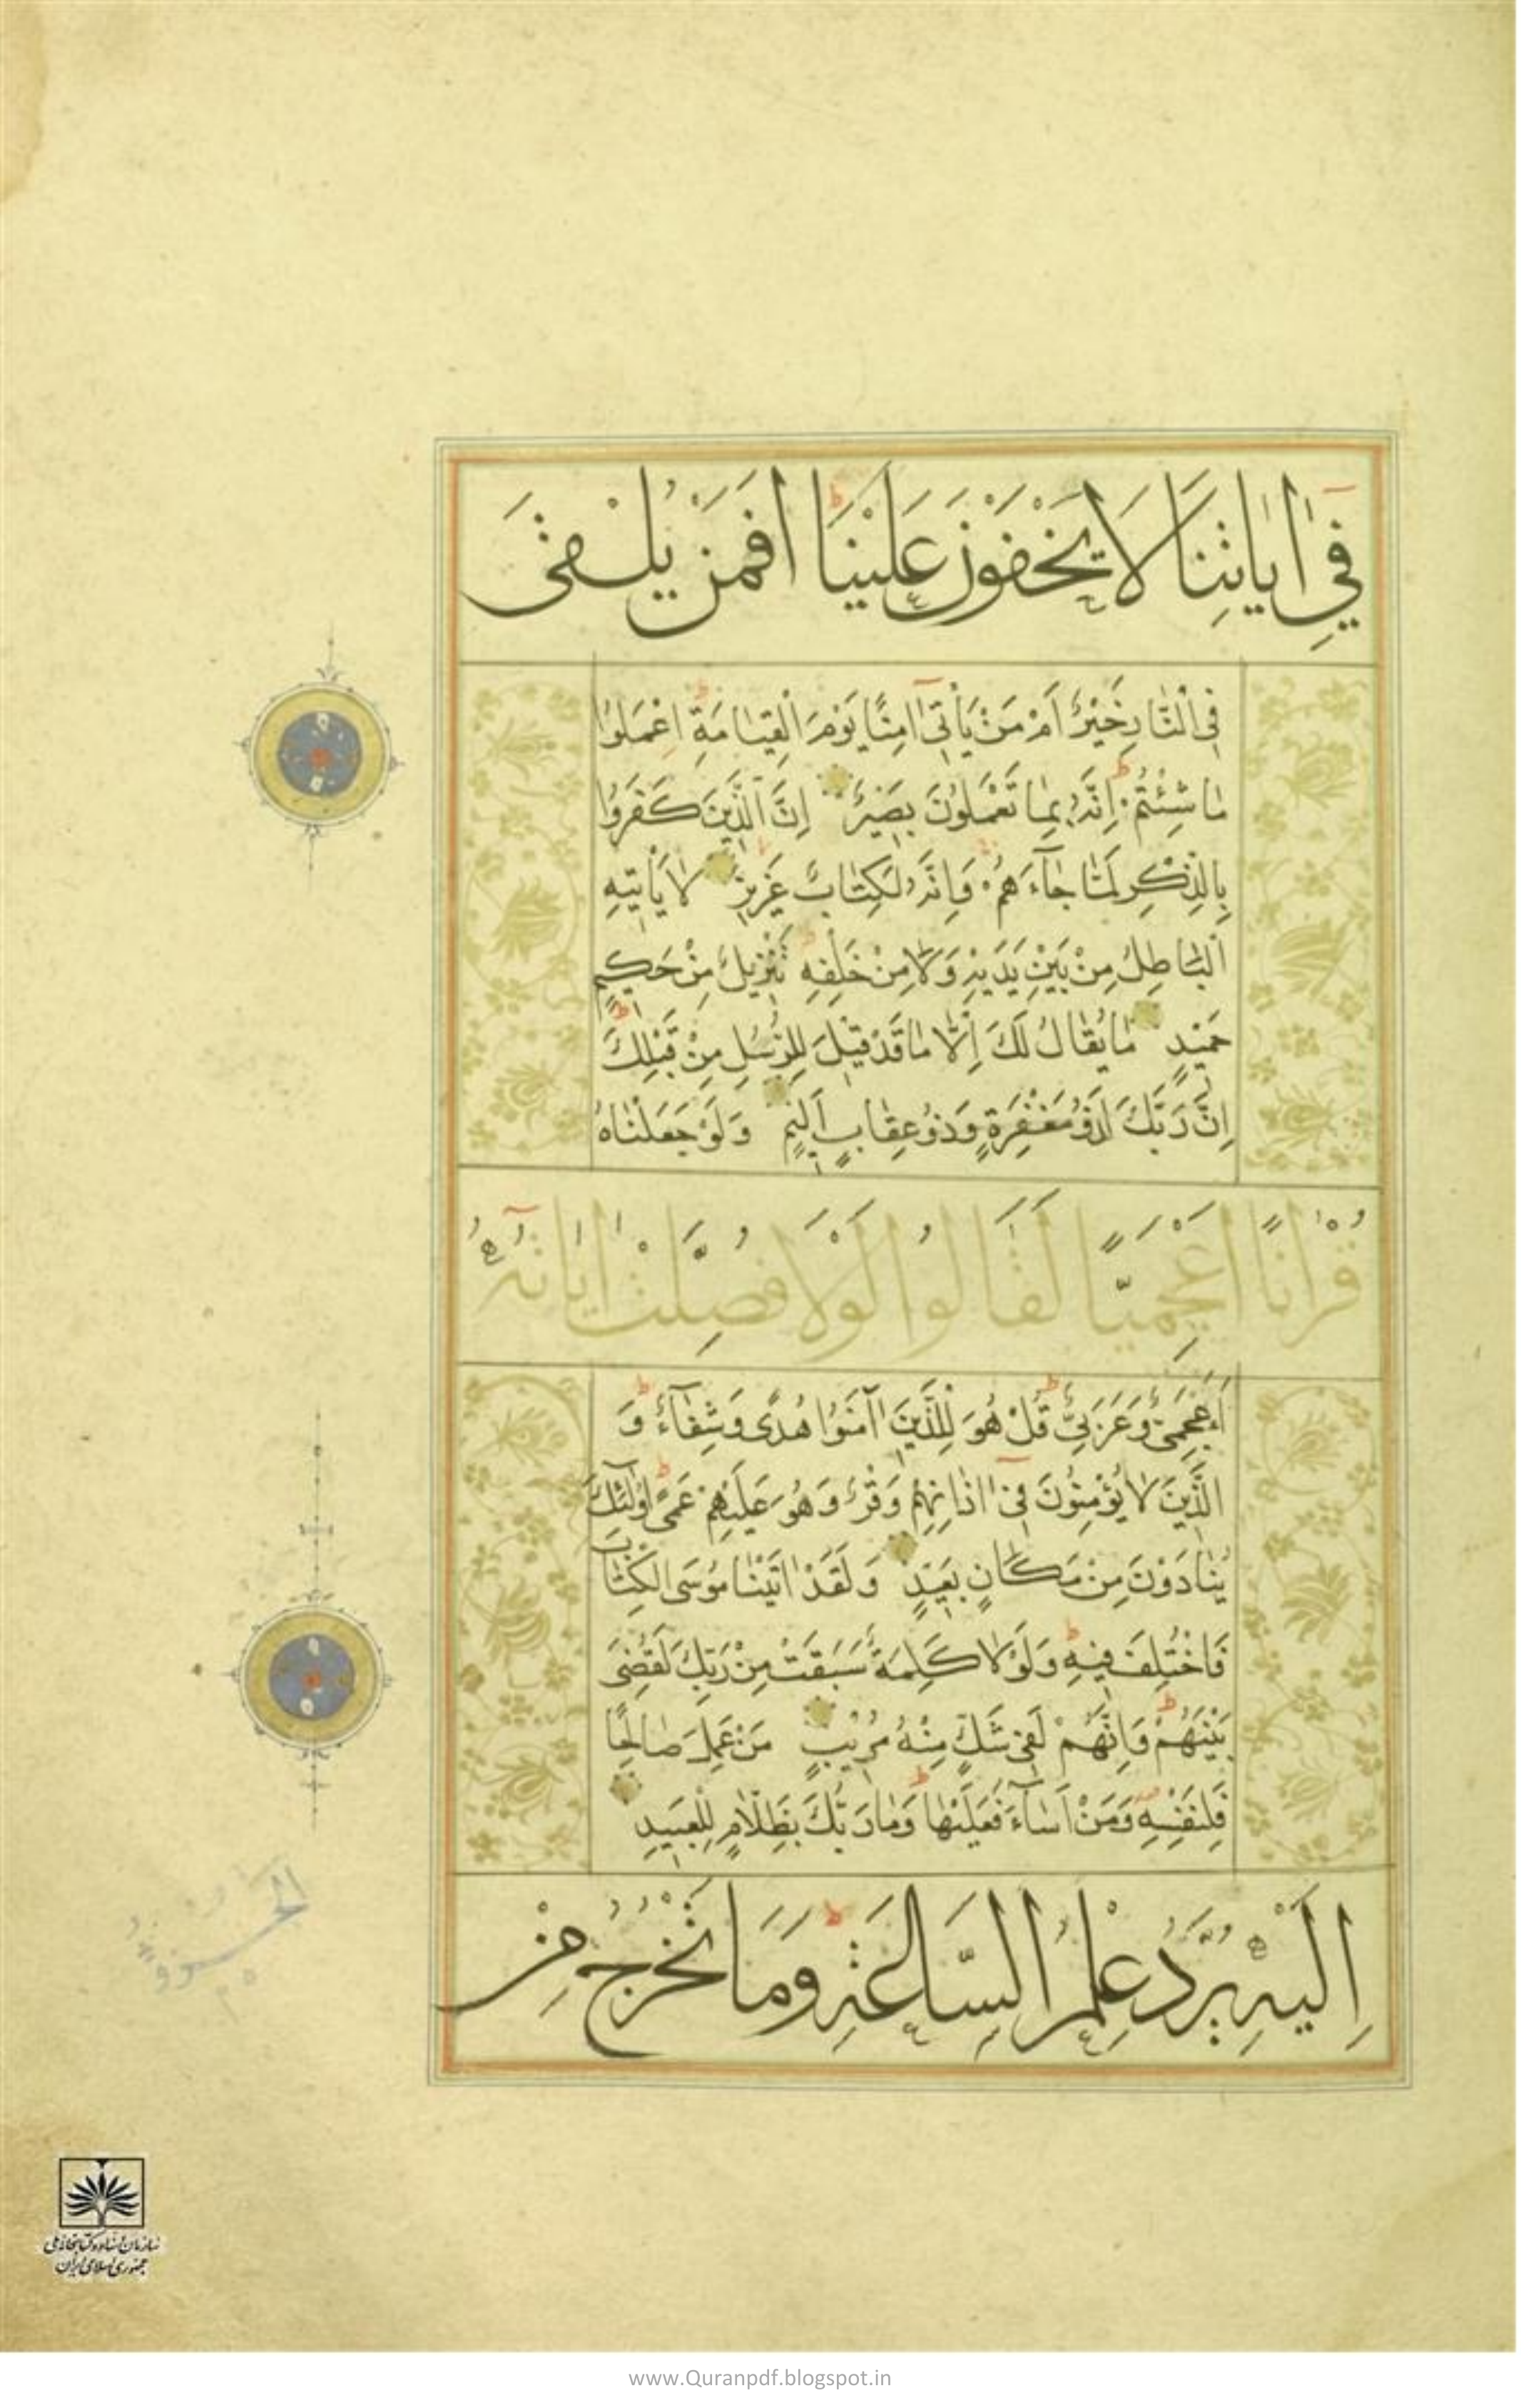 فِي اٰيَاتِنَا لَا يَخْفَوْنَ عَلَيْنَا اَفَمَنْ يُلْقٰى
فِى النَّارِ خَيْرٌ اَمْ مَنْ يَأْتِىٓ اٰمِنًا يَوْمَ الْقِيٰامَةِ اِعْمَلُوا
مٰا شِئْتُمْ اِنَّهُ بِمٰا تَعْمَلُونَ بَصِيرٌ اِنَّ الَّذِينَ كَفَرُوا
بِالذِّكْرِ لَمّٰا جٰاۤءَهُمْ وَاِنَّهُ لَكِتٰابٌ عَزِيزٌ لٰا يَأْتِيهِ
الْبٰاطِلُ مِنْ بَيْنِ يَدَيْهِ وَلٰا مِنْ خَلْفِهِ تَنْزِيلٌ مِنْ حَكِيمٍ
حَمِيدٍ مٰا يُقٰالُ لَكَ اِلّٰا مٰا قَدْ قِيلَ لِلرُّسُلِ مِنْ قَبْلِكَ
اِنَّ رَبَّكَ لَذُو مَغْفِرَةٍ وَذُو عِقٰابٍ اَلِيمٍ وَلَوْ جَعَلْنٰاهُ
قُرْاٰنًا اَعْجَمِيًّا لَقٰالُوا لَوْلَا فُصِّلَتْ اٰيٰاتُهُ
ءَاَعْجَمِىٌّ وَعَرَبِىٌّ قُلْ هُوَ لِلَّذِينَ اٰمَنُوا هُدًى وَشِفٰاۤءٌ وَ
الَّذِينَ لٰا يُؤْمِنُونَ فِىٓ اٰذٰانِهِمْ وَقْرٌ وَهُوَ عَلَيْهِمْ عَمًى اُولٰئِكَ
يُنٰادَوْنَ مِنْ مَكٰانٍ بَعِيدٍ وَلَقَدْ اٰتَيْنٰا مُوسَى الْكِتٰابَ
فَاخْتُلِفَ فِيهِ وَلَوْلٰا كَلِمَةٌ سَبَقَتْ مِنْ رَبِّكَ لَقُضِىَ
بَيْنَهُمْ وَاِنَّهُمْ لَفِى شَكٍّ مِنْهُ مُرِيبٍ مَنْ عَمِلَ صٰالِحًا
فَلِنَفْسِهِ وَمَنْ اَسٰاۤءَ فَعَلَيْهٰا وَمٰا رَبُّكَ بِظَلّٰامٍ لِلْعَبِيدِ
اِلَيْهِ يُرَدُّ عِلْمُ السَّاعَةِ وَمَا تَخْرُجُ مِنْ
سازمان اسناد و کتابخانه ملی
جمهوری اسلامی ایران
www.Quranpdf.blogspot.in